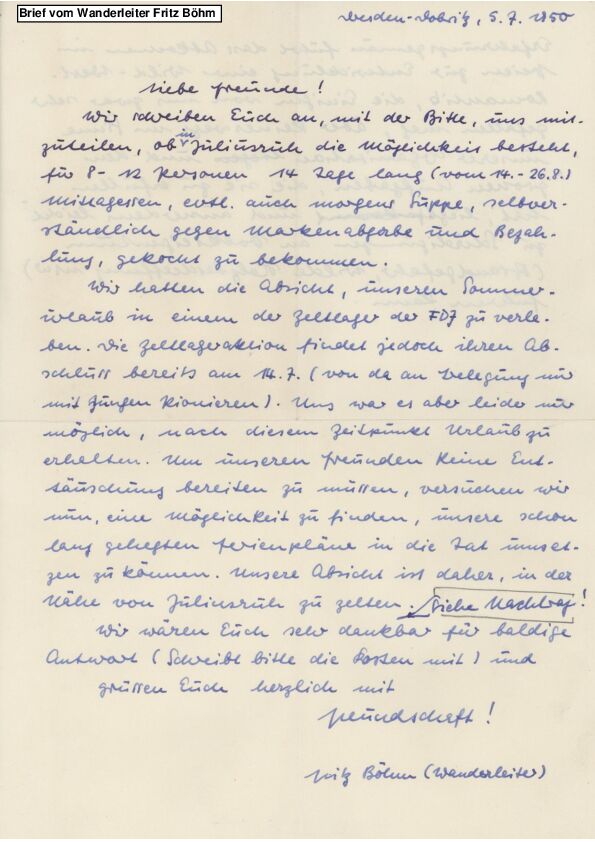 Brief vom Wanderleiter Fritz Böhm
Dresden-Dobritz, 5.7.1950
Liebe Freunde!
Wir schreiben Euch an, mit der Bitte, uns mit-
zuteilen, ob in Juliusruh die Möglichkeit besteht,
für 8 - 12 Personen 14 Tage lang (vom 14. - 26.8.)
Mittagessen, evtl. auch morgens Suppe, selbver-
ständlich gegen Markenabgabe und Bezah-
lung, gekocht zu bekommen.
Wir hatten die Absicht, unseren Sommer-
urlaub in einem der Zeltlager der FDJ zu verle-
ben. Die Zeltlageraktion findet jedoch ihren Ab-
schluss bereits am 14.7. (von da an Belegung nur
mit Jungen Pionieren). Uns war es aber leider nur
möglich, nach diesem Zeitpunkt Urlaub zu
erhalten. Um unseren Freunden keine Ent-
täuschung bereiten zu müssen, versuchen wir
nun, eine Möglichkeit zu finden, unsere schon
lang gehegten Ferienpläne in die Tat umset-
zen zu können. Unsere Absicht ist daher, in der
Nähe von Juliusruh zu zelten. Siehe Nachtrag!
Wir wären Euch sehr dankbar für baldige
Antwort (Schreibt bitte die Kosten mit) und
grüssen Euch herzlich mit
Freundschaft!
Fritz Böhm (Wanderleiter)